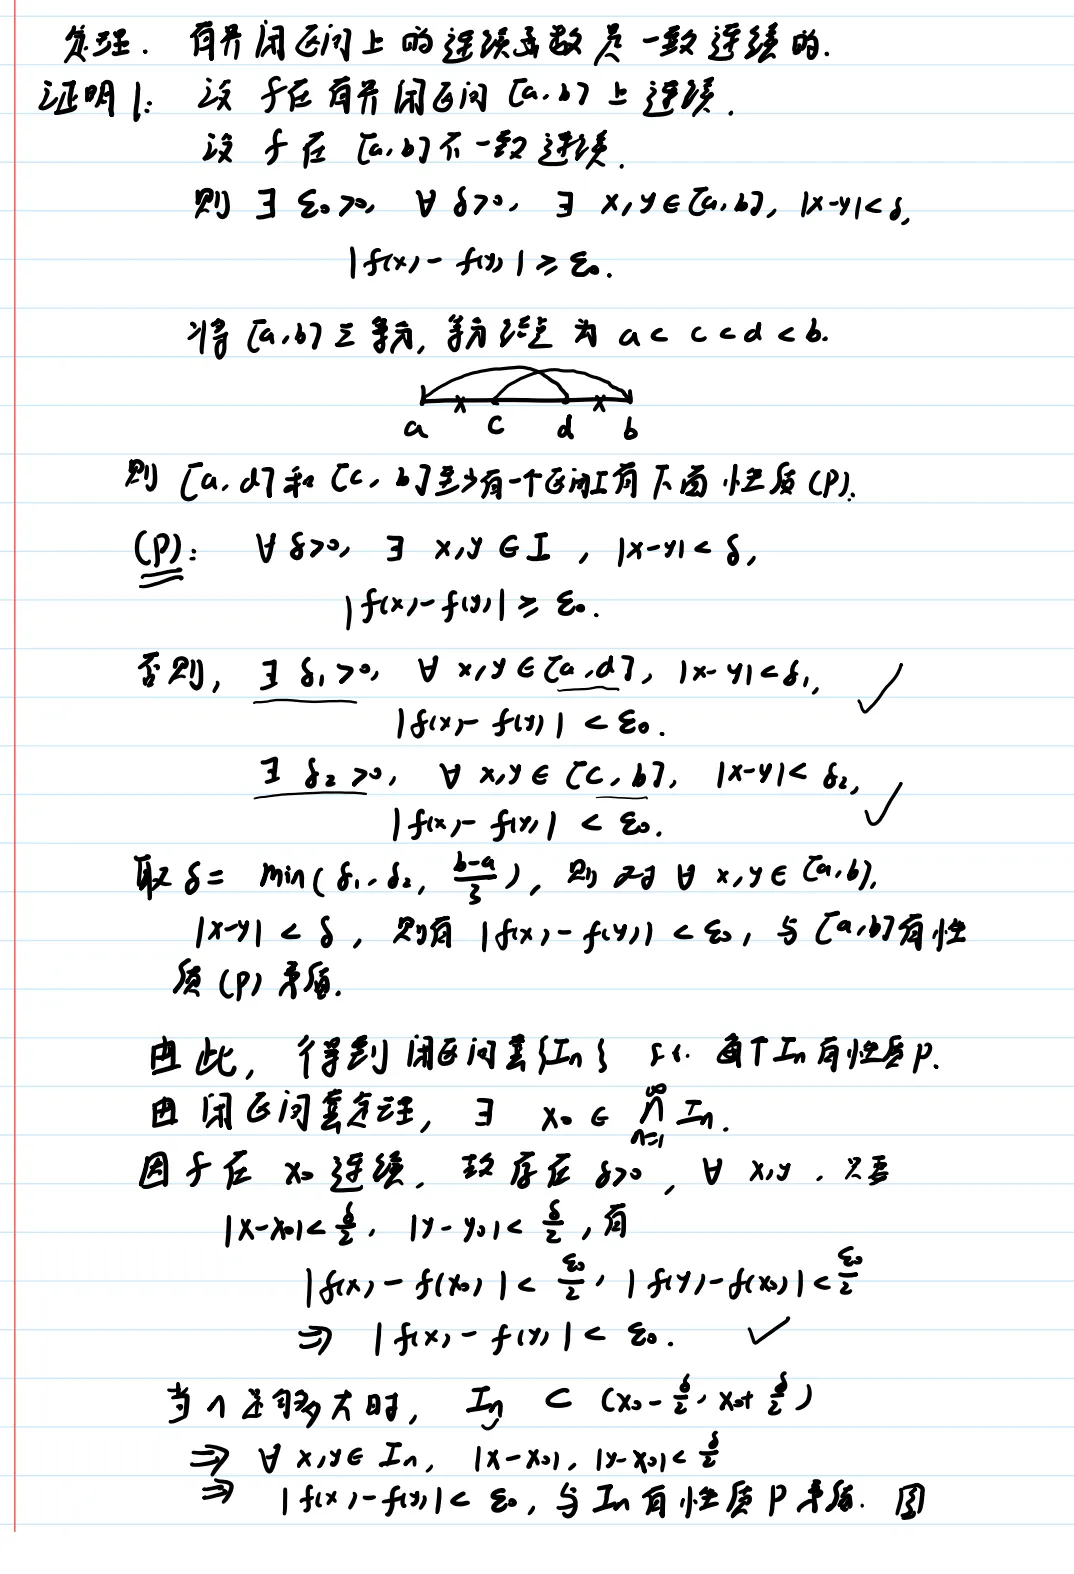 定理. 有界闭区间上的连续函数是一致连续的.
证明1: 设 f在有界闭区间 [a,b] 上连续.
设 f 在 [a,b] 不一致连续.
则 ∃ ε₀>0, ∀ δ>0, ∃ x,y∈[a,b], |x-y|<δ,
|f(x)-f(y)|≥ε₀.
将 [a,b] 三等分, 等分结点 为 a<c<d<b.
a c d b
则 [a,d] 和 [c,b] 至少有一个区间I有下面性质(P).
(P): ∀ δ>0, ∃ x,y∈I, |x-y|<δ,
|f(x)-f(y)|≥ε₀.
否则, ∃ δ₁>0, ∀ x,y∈[a,d], |x-y|<δ₁, ✓
|f(x)-f(y)|<ε₀.
∃ δ₂>0, ∀ x,y∈[c,b], |x-y|<δ₂, ✓
|f(x)-f(y)|<ε₀.
取 δ= min(δ₁,δ₂, (b-a)/3), 则 对 ∀ x,y∈[a,b],
|x-y|<δ, 则有 |f(x)-f(y)|<ε₀, 与 [a,b]有性
质(P) 矛盾.
由此, 得到 闭区间套{Iₙ} s.t. 每个 Iₙ 有性质P.
由 闭区间套定理, ∃ x₀∈ ∩_{n=1}^∞ Iₙ.
因 f 在 x₀ 连续, 故存在 δ>0, ∀ x,y, 只要
|x-x₀|<δ/2, |y-y₀|<δ/2, 有
|f(x)-f(x₀)|<ε₀/2, |f(y)-f(x₀)|<ε₀/2
⇒ |f(x)-f(y)|<ε₀. ✓
当 n 足够大时, Iₙ ⊂ (x₀-δ/2, x₀+δ/2)
⇒ ∀ x,y∈Iₙ, |x-x₀|, |y-x₀|<δ/2
⇒ |f(x)-f(y)|<ε₀, 与 Iₙ 有性质P矛盾.